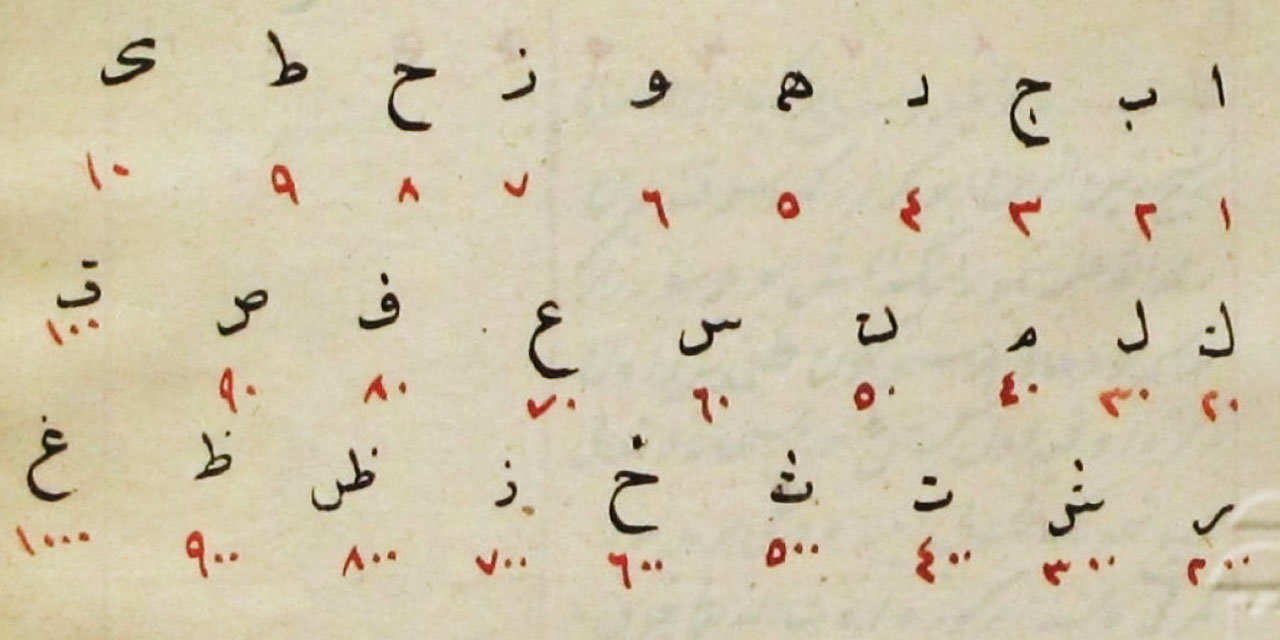 ا ب ج د ه و ز ح ط ى
١ ٢ ٣ ٤ ٥ ٦ ٧ ٨ ٩ ١٠
ك ل م ن س ع ف ص ق
٢٠ ٣٠ ٤٠ ٥٠ ٦٠ ٧٠ ٨٠ ٩٠ ١٠٠
ر ش ت ث خ ذ ض ظ غ
٢٠٠ ٣٠٠ ٤٠٠ ٥٠٠ ٦٠٠ ٧٠٠ ٨٠٠ ٩٠٠ ١٠٠٠